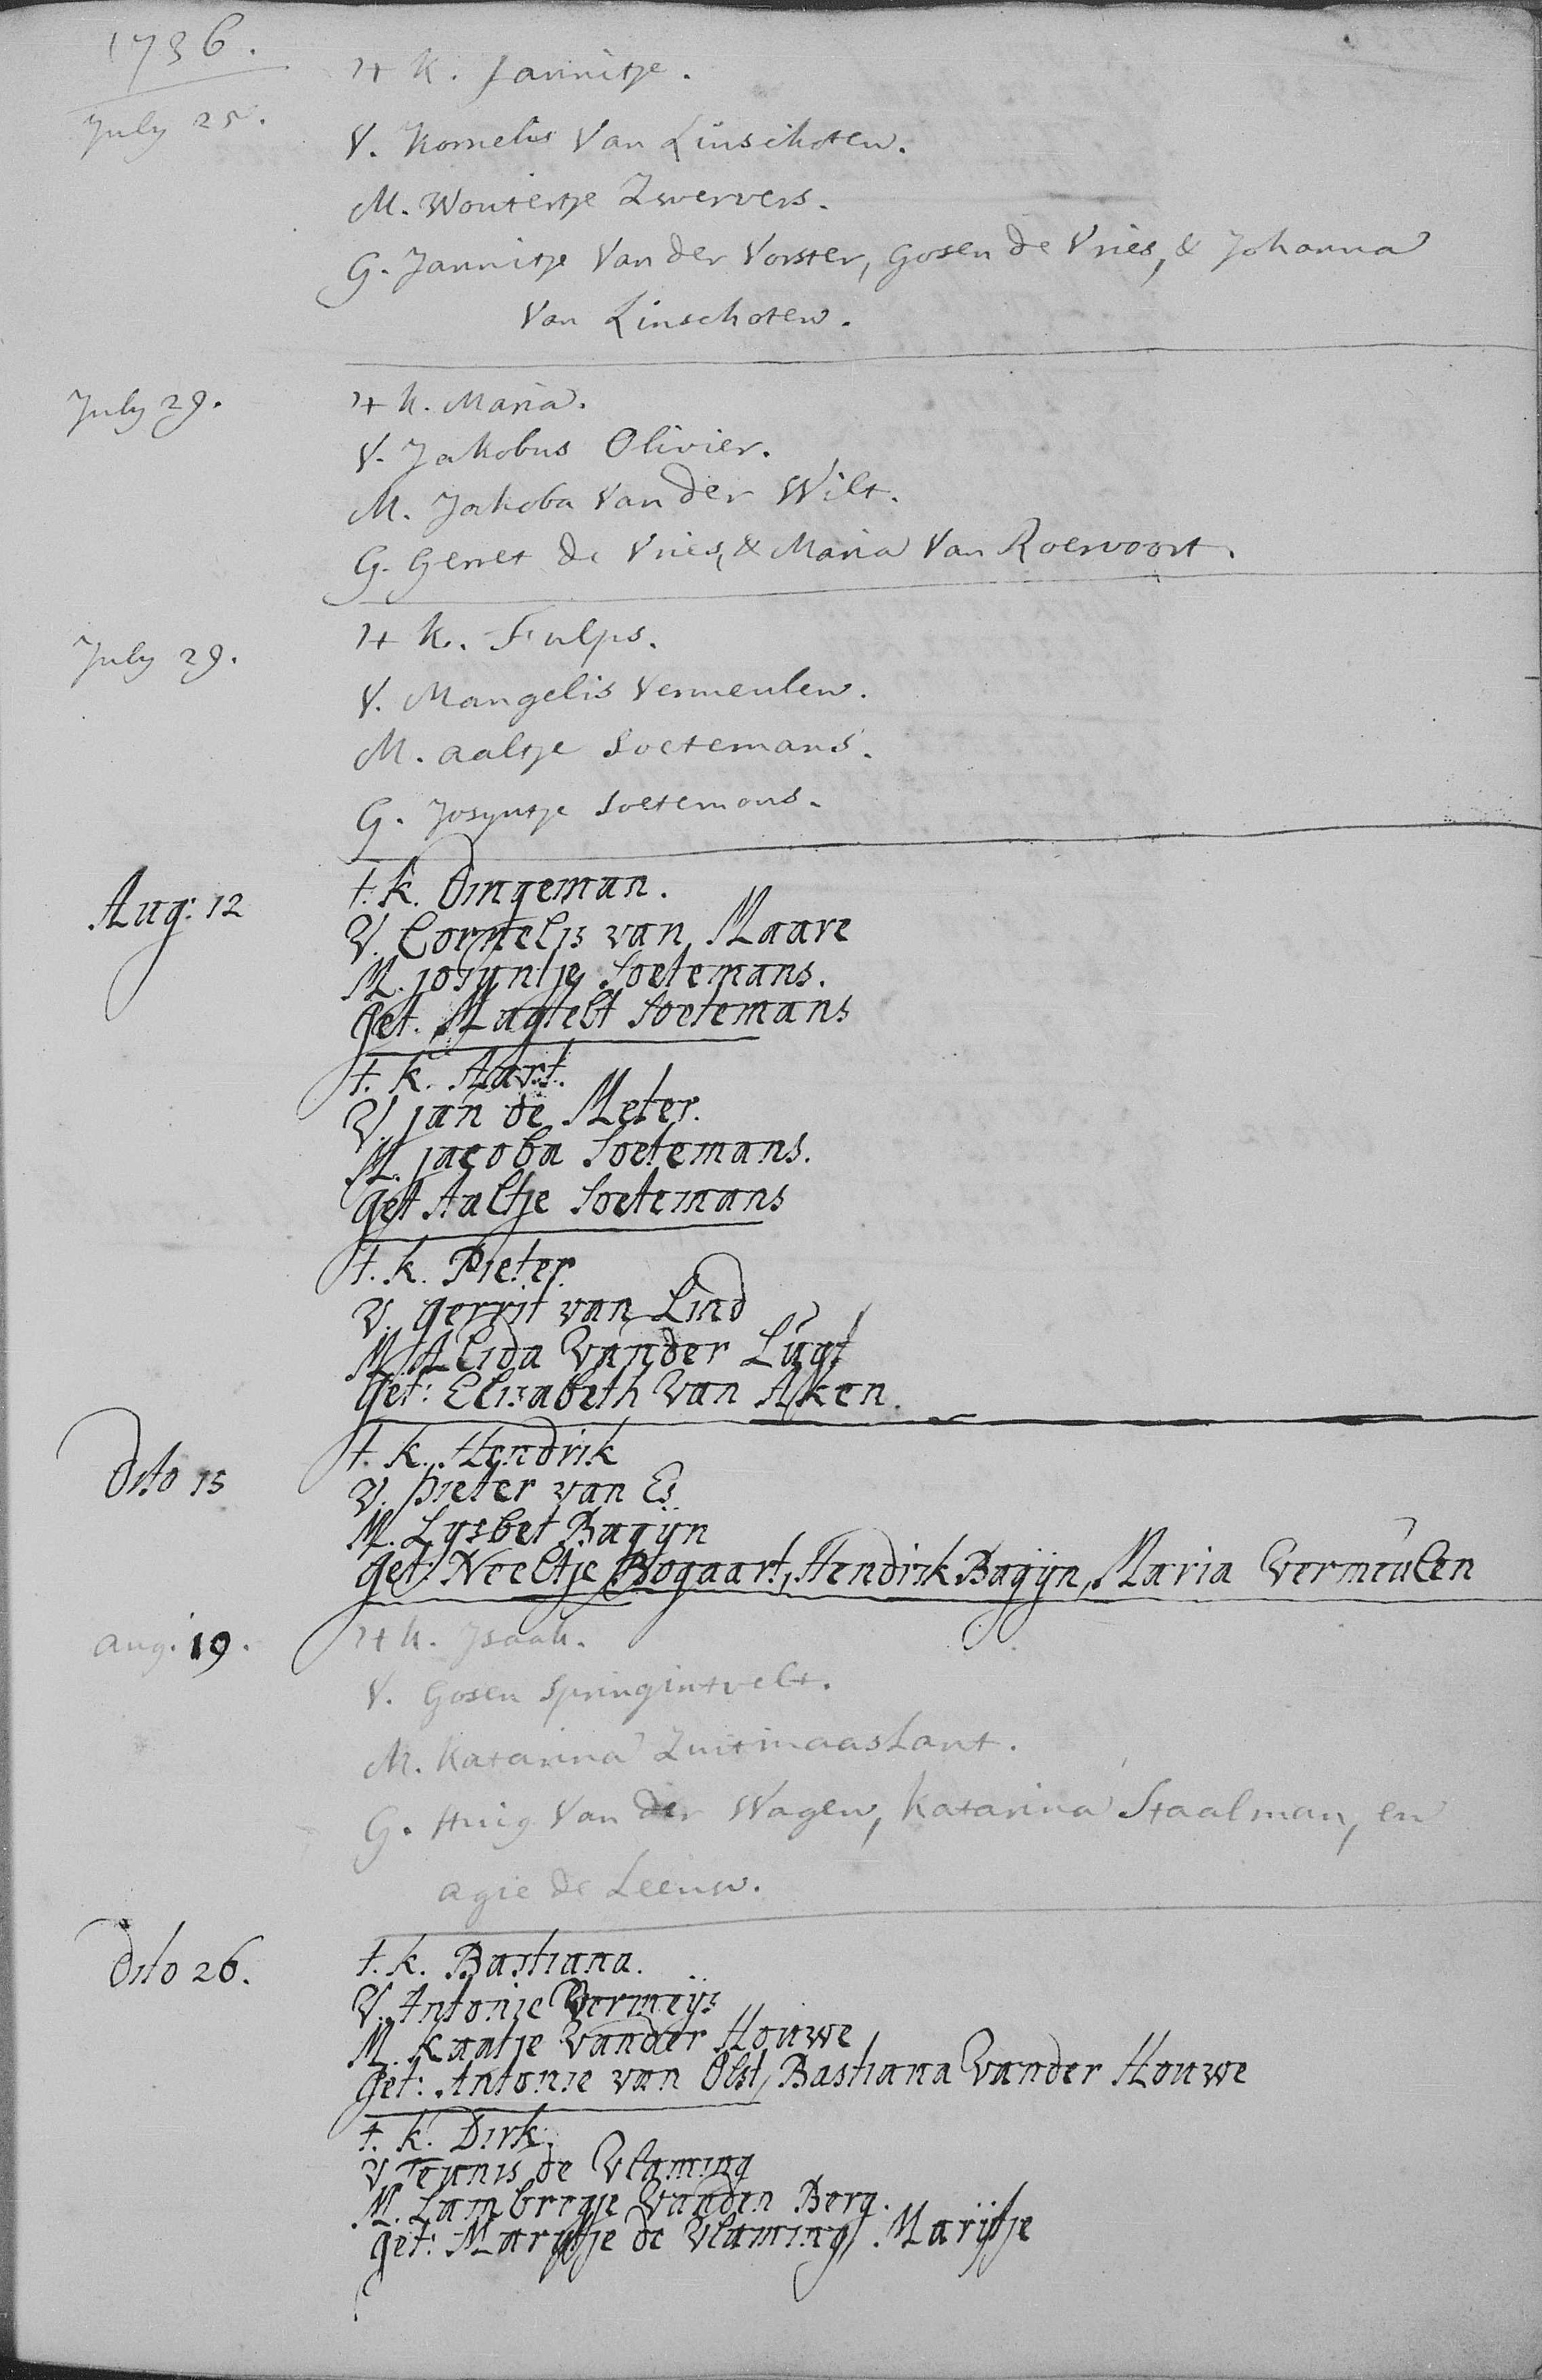 1736.
July 25.
't K. Jannitje.
V. Kornelis Van Linschoten.
M. Woutertje Zwervers.
G. Jannitje Van der Vorster, Gosen de Vries, & Johanna
Van Linschoten.
July 29.
't K. Maria.
V. Jakobus Olivier.
M. Jakoba Van der Wilt.
G. Gerret de Vries, & Maria Van Roervoort.
July 29.
't K. Fulps.
V. Mangelis Vermeulen.
M. Aaltje Soetemans.
G. Josyntje Soetemans.
Aug: 12
t. k. Dingeman.
V. Cornelis van Maare
M. josyntje Soetemans.
get. Magtelt Soetemans
t. k. Aart.
V. jan de Meter.
M. jacoba Soetemans.
get Aaltje Soetemans
t. k. Pieter.
V. gerrit van Lind
M. Alida Vander Lugt
get: Elisabeth Van Aken.
Dito 15
t. k. Hendrik
V. Pieter van Es
M. Lysbet Bagijn
get: Neeltje Bogaart, Hendrik Bagijn, Maria Vermeulen
Aug. 19.
't K. Isaak.
V. Gosen Springintvelt.
M. Katarina Zuitmaaslant.
G. Huig Van der Wagen, Katarina Staalman, en
Agie de Leeuw.
Dito 26.
t. k. Bastiana.
V. Antonie Vermeijs
M. Kaatje Vander Houwe
get: Antonie van Olst, Bastiana Vander Houwe
t. k. Dirk.
V Teunis de Vlaming
M. Lambregje Vanden Berg.
get: Marijtje de Vlaming, Marijtje